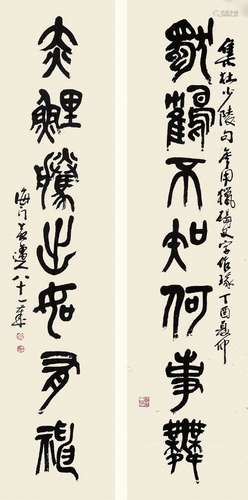 獨鶴不知何事舞
集杜少陵句參用獵碣文字作聯丁酉夏仰
赤鯉騰出如有神
海門 八十一